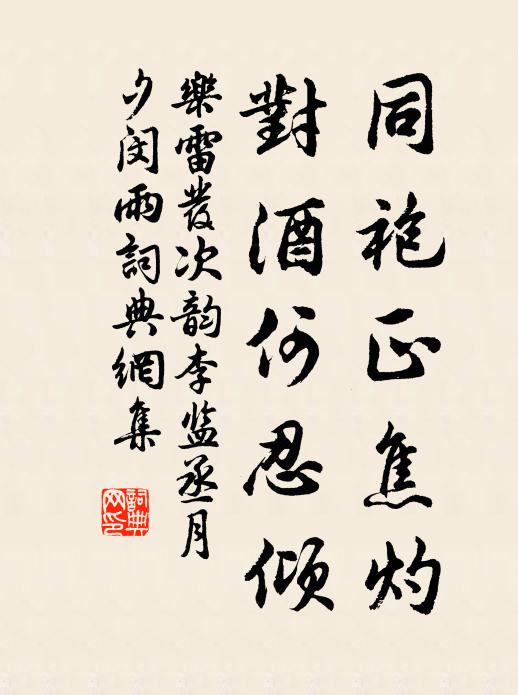 同袍正焦灼
對酒何忍傾
樂雷發次韵李监丞月
夕闵雨詞典網集
詞典网印